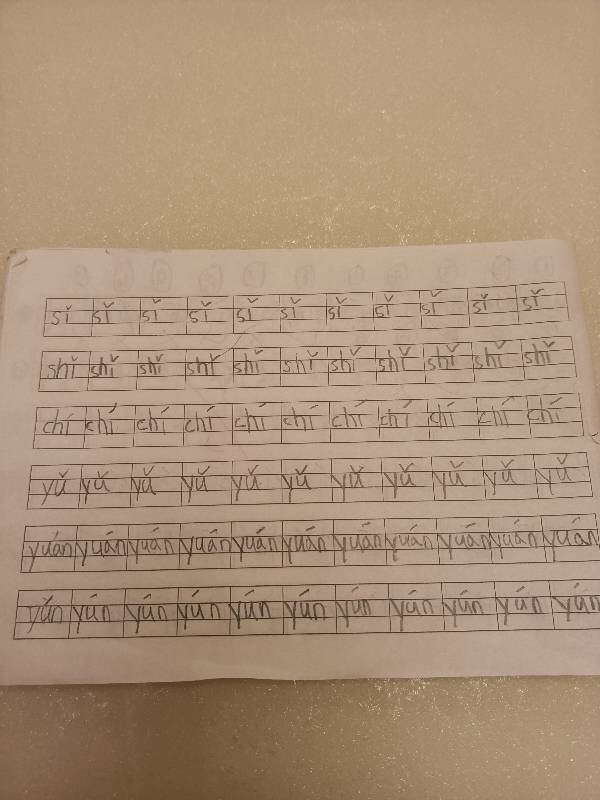 sǐ sǐ sǐ sǐ sǐ sǐ sǐ sǐ sǐ sǐ sǐ
shǐ shǐ shǐ shǐ shǐ shǐ shǐ shǐ shǐ shǐ shǐ
chí chí chí chí chí chí chí chí chí chí chí
yǔ yǔ yǔ yǔ yǔ yǔ yǔ yǔ yǔ yǔ yǔ
yuán yuán yuán yuán yuán yuán yuán yuán yuán yuán yuán
yún yún yún yún yún yún yún yún yún yún yún